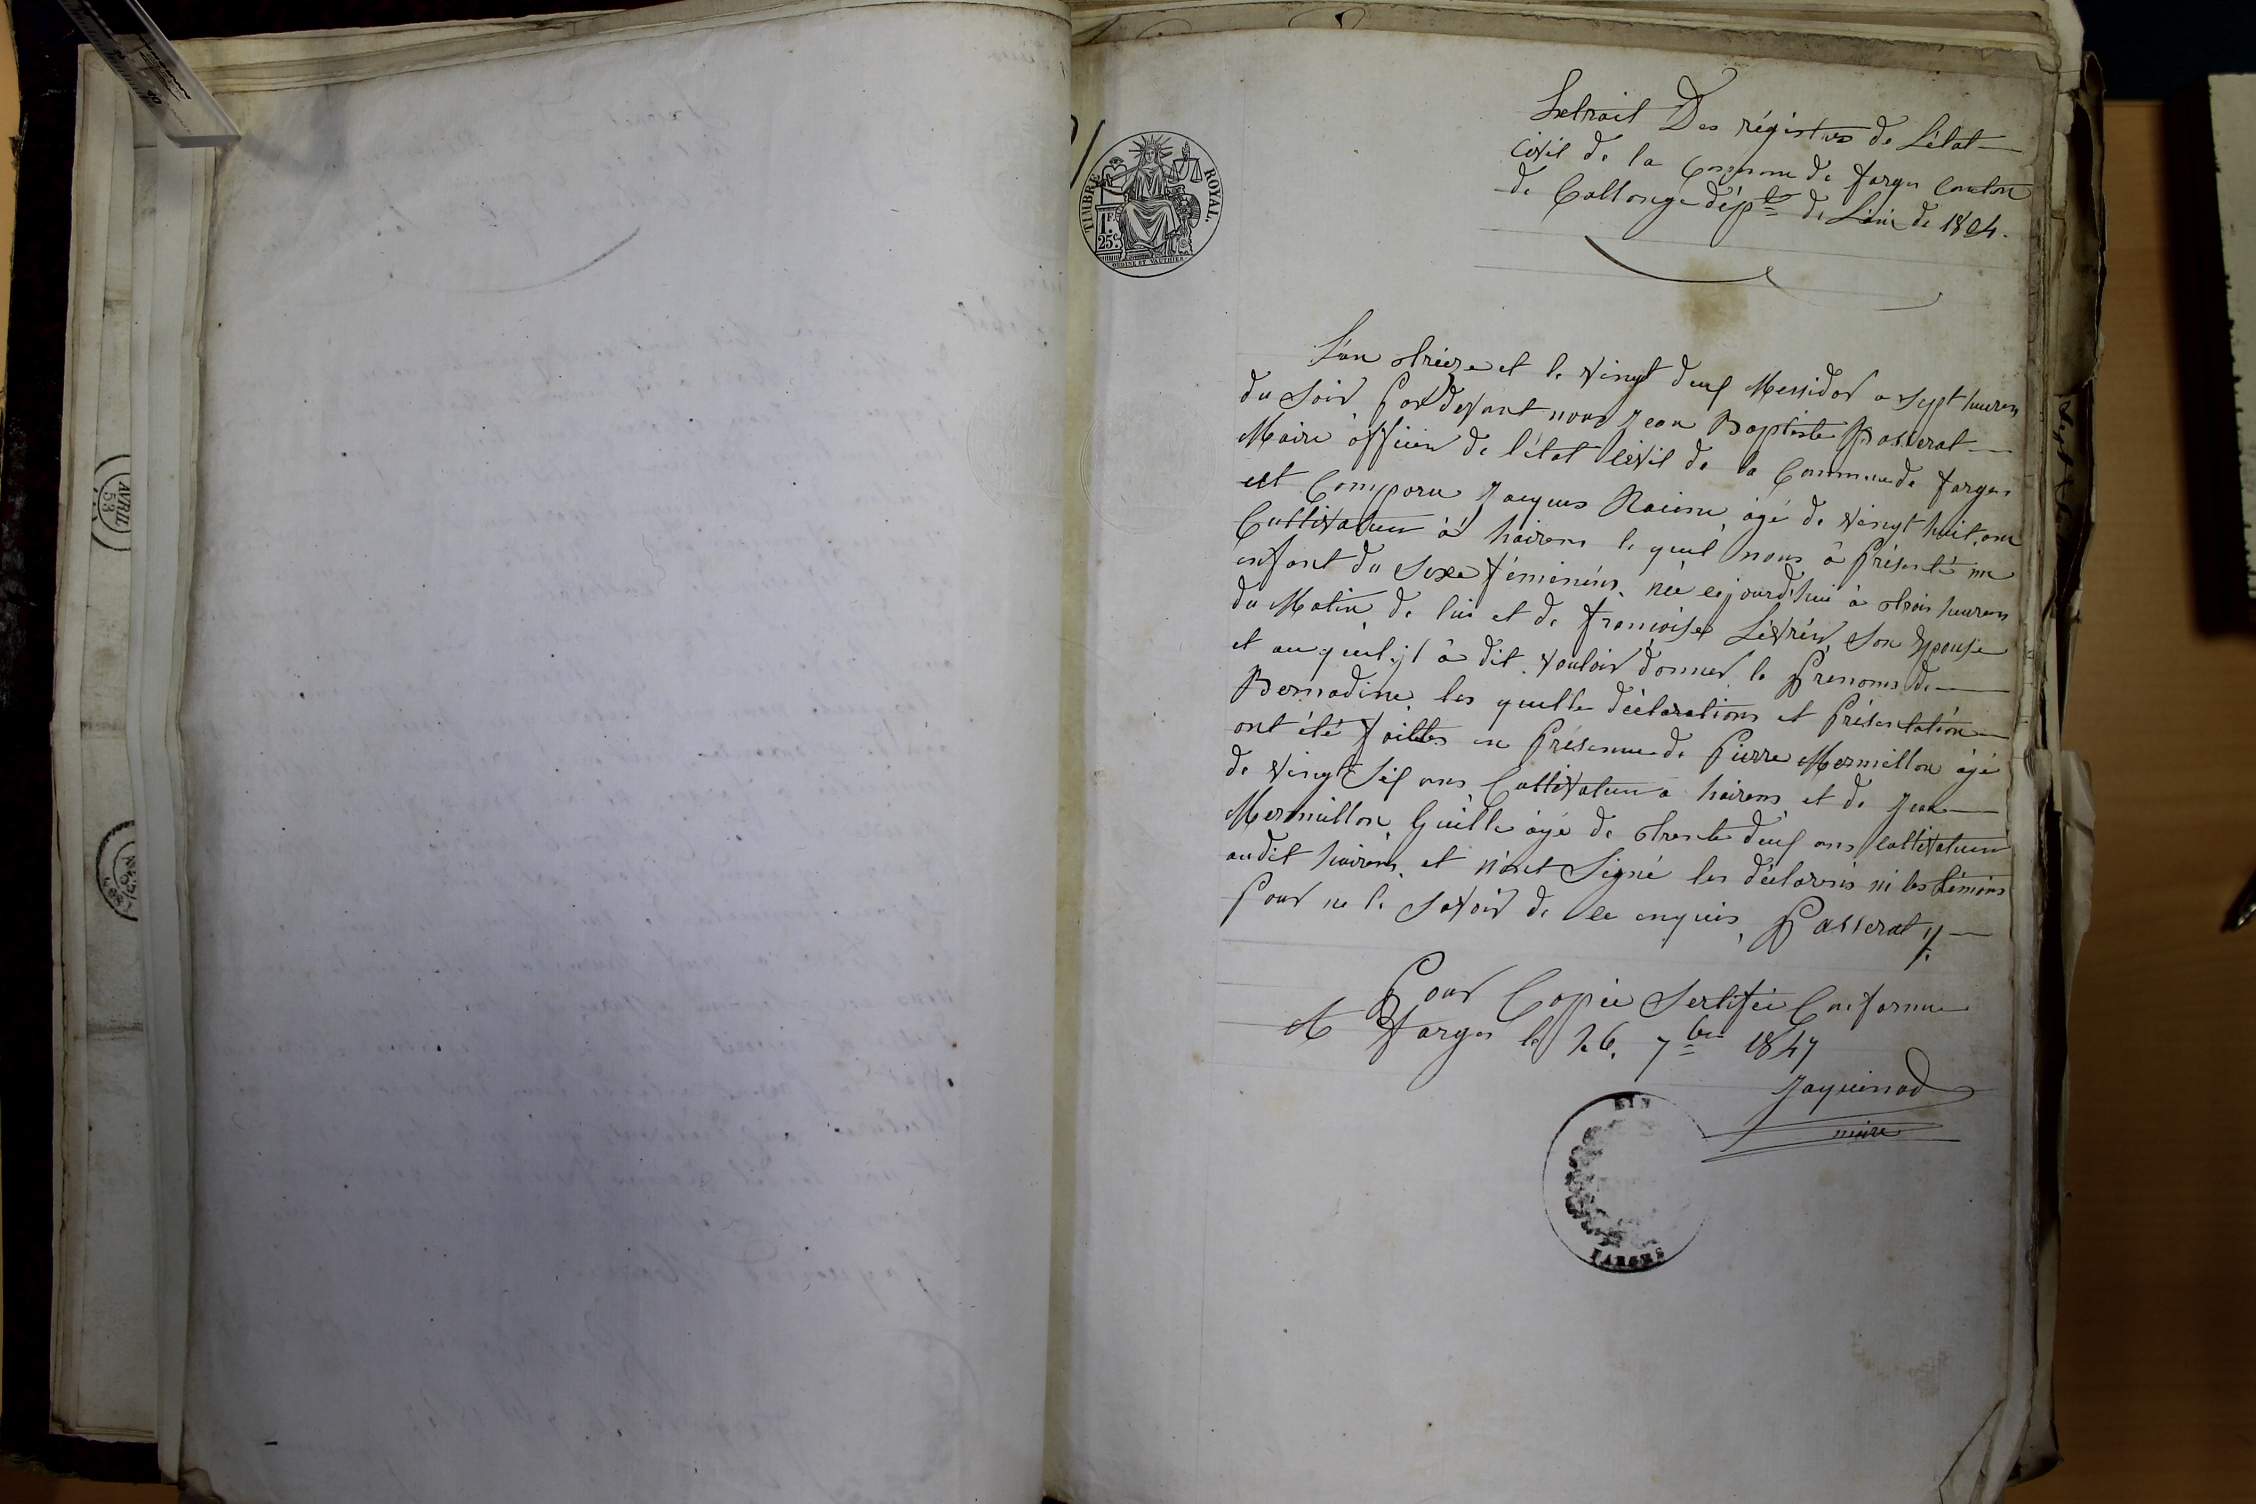 Extrait Des régistres de L'état
civil de la Commune de farges canton
de Collonge dépt de L'ain de 1804.
TIMBRE ROYAL.
1 F.
25 c.
L'an treize et le vingt deux Messidor a sept heures
du Soir Par devant nous Jean Baptiste Passerat
Maire officier de l'état Civil de la Commune de farges
est Comparu Jacques Racine, agé de vingt huit ans
Cultivateur à hairens le quel nous à Présenté un
enfant du Sexe féminins, née cejourd'hui à trois heures
du Matin, de lui et de françoise Lévrier, Son Epouse
et au quel il à dit vouloir donner le Prenoms de
Bernadine, les quelle déclarations et Présentation
ont été faittes en Présence de Pierre Mermillon agé
de vingt Six ans Cultivateur a hairens et de Jean
Mermillon Guille agé de trente deux ans cultivateur
audit hairens, et n'ont Signé les déclarens ni les témoins
Pour ne le Savoir de ce enquis, Passerat
Pour Copie Sertifée Conforme
A farges le 26. 7bre 1847
Jaquinod
maire
FARGES
AVRIL
53